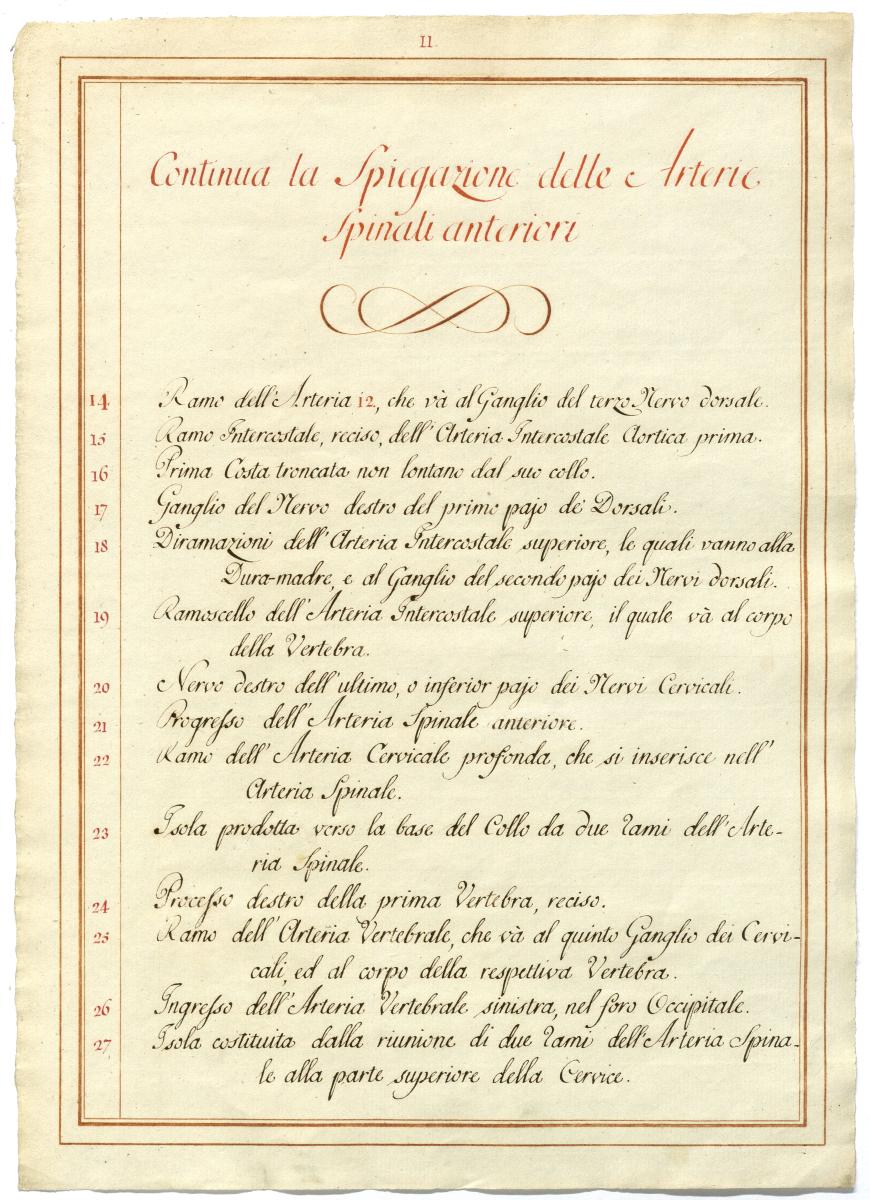 II
Continua la Spiegazione delle Arterie
Spinali anteriori
14 Ramo dell'Arteria 12, che và al Ganglio del terzo Nervo dorsale.
15 Ramo Intercostale, reciso, dell'Arteria Intercostale Aortica prima.
16 Prima Costa troncata non lontano dal suo collo.
17 Ganglio del Nervo destro del primo pajo de' Dorsali.
18 Diramazioni dell'Arteria Intercostale superiore, le quali vanno alla
Dura-madre, e al Ganglio del secondo pajo dei Nervi dorsali.
19 Ramoscello dell'Arteria Intercostale superiore, il quale và al corpo
della Vertebra.
20 Nervo destro dell'ultimo, o inferior pajo dei Nervi Cervicali.
21 Progreſso dell'Arteria Spinale anteriore.
22 Ramo dell'Arteria Cervicale profonda, che si inserisce nell'
Arteria Spinale.
23 Isola prodotta verso la base del Collo da due rami dell'Arte-
ria Spinale.
24 Proceſso destro della prima Vertebra, reciso.
25 Ramo dell'Arteria Vertebrale, che và al quinto Ganglio dei Cervi-
cali, ed al corpo della respettiva Vertebra.
26 Ingreſso dell'Arteria Vertebrale sinistra, nel foro Occipitale.
27 Isola costituita dalla riunione di due rami dell'Arteria Spina-
le alla parte superiore della Cervice.